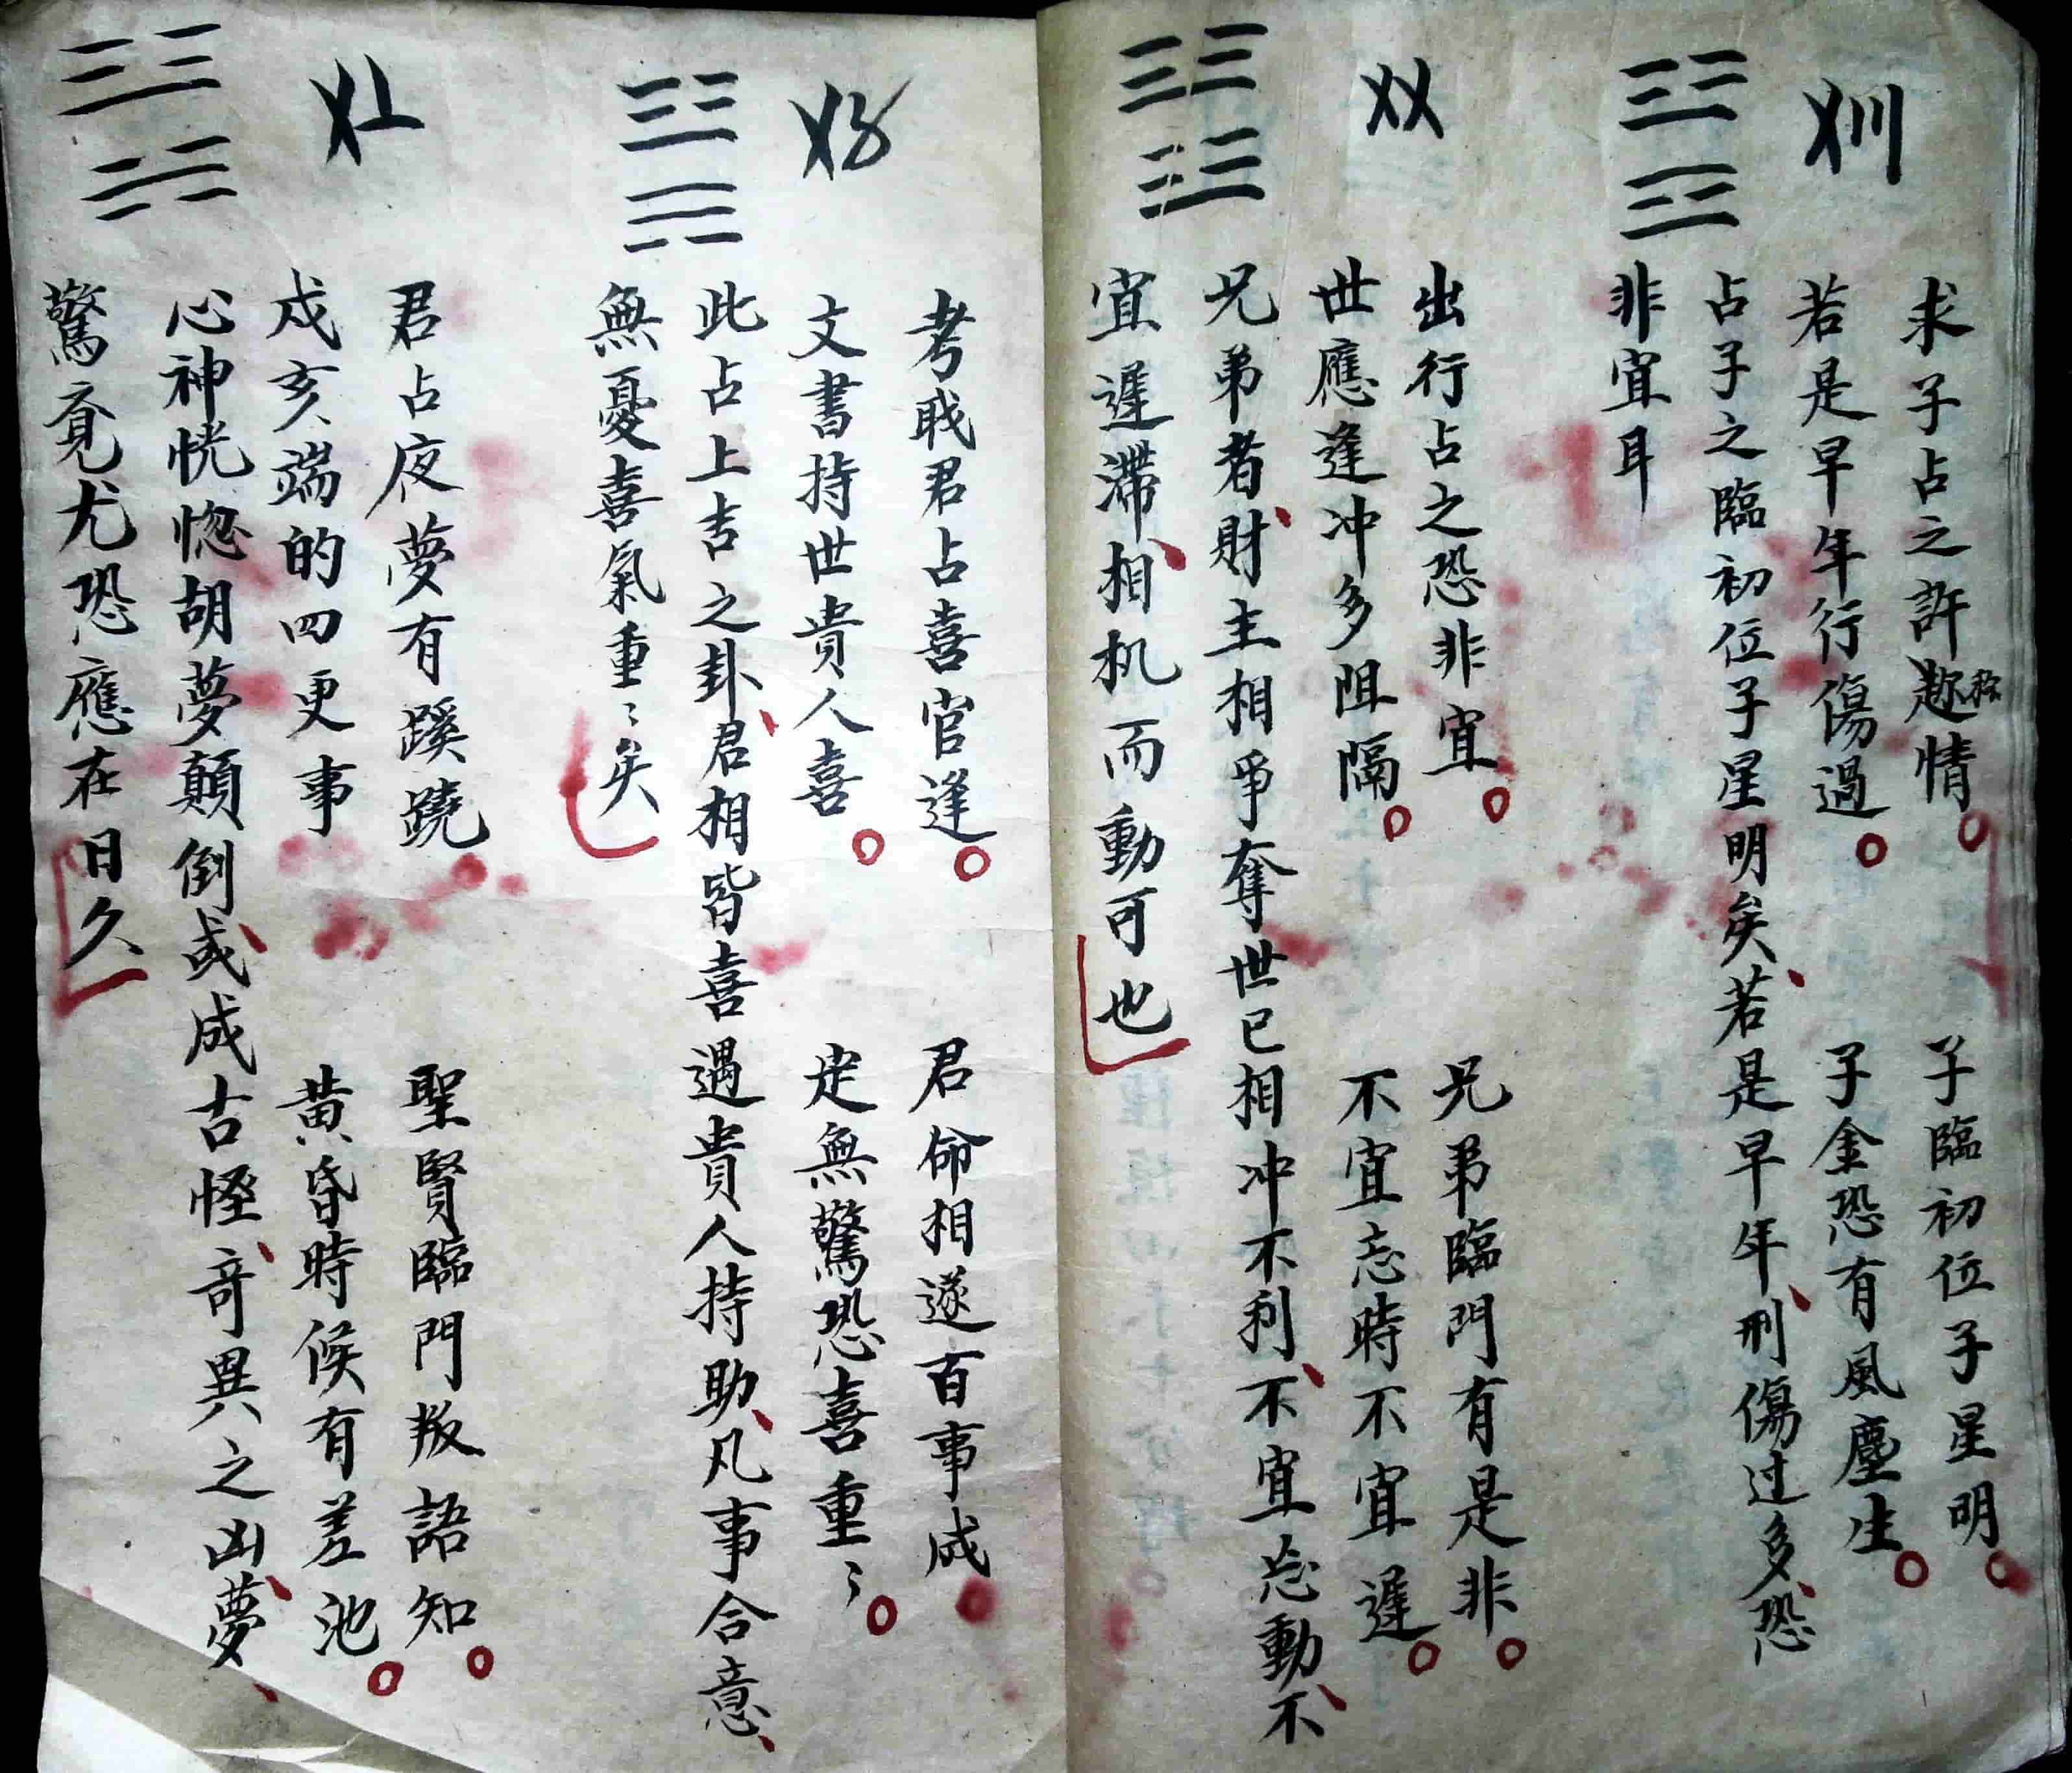 〤〣
求子占之許趂情
子臨初位子星明
若是早年行傷過
子金恐有風塵生
占子之臨初位子星明矣若是早年刑傷过多恐
非宜耳
〤〤
出行占之恐非宜
兄弟臨門有是非
世應逢冲多阻隔
不宜忘時不宜遲
兄弟者財主相爭奪世已相冲不利不宜忘動不
宜遲滯相机而動可也
〤〥
考戝君占喜官逢
君命相遂百事成
文書持世貴人喜
定無驚恐喜重〻
此占上吉之卦君相皆喜遇貴人持助凡事合意
無憂喜氣重〻矣
〤〦
君占夜夢有蹊蹺
聖賢臨門叛語知
戌亥端的四更事
黄昏時候有差池
心神恍惚胡夢顛倒或成古怪奇異之凶夢
驚覔尤恐應在日久